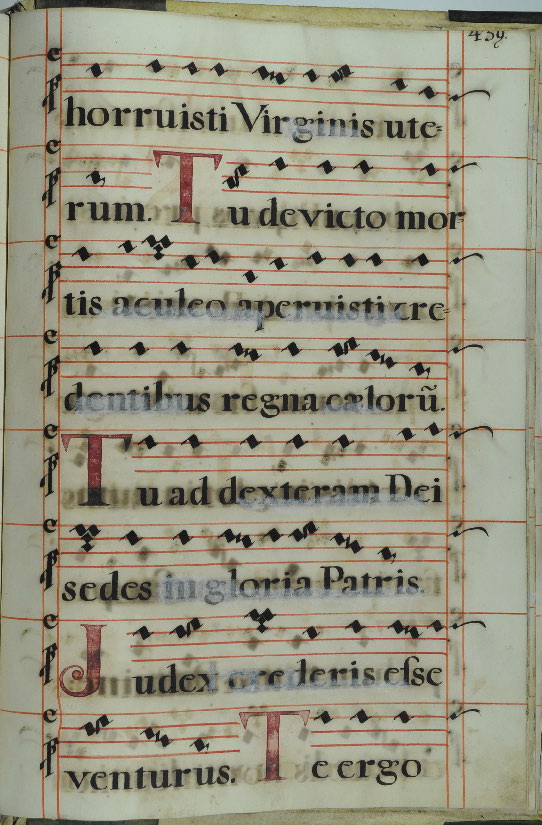 439.
horruisti Virginis ute-
rum. Tu devicto mor-
tis aculeo aperuisti cre-
dentibus regna cælorũ.
Tu ad dexteram Dei
sedes in gloria Patris.
Judex crederis eſse
venturus. Te ergo